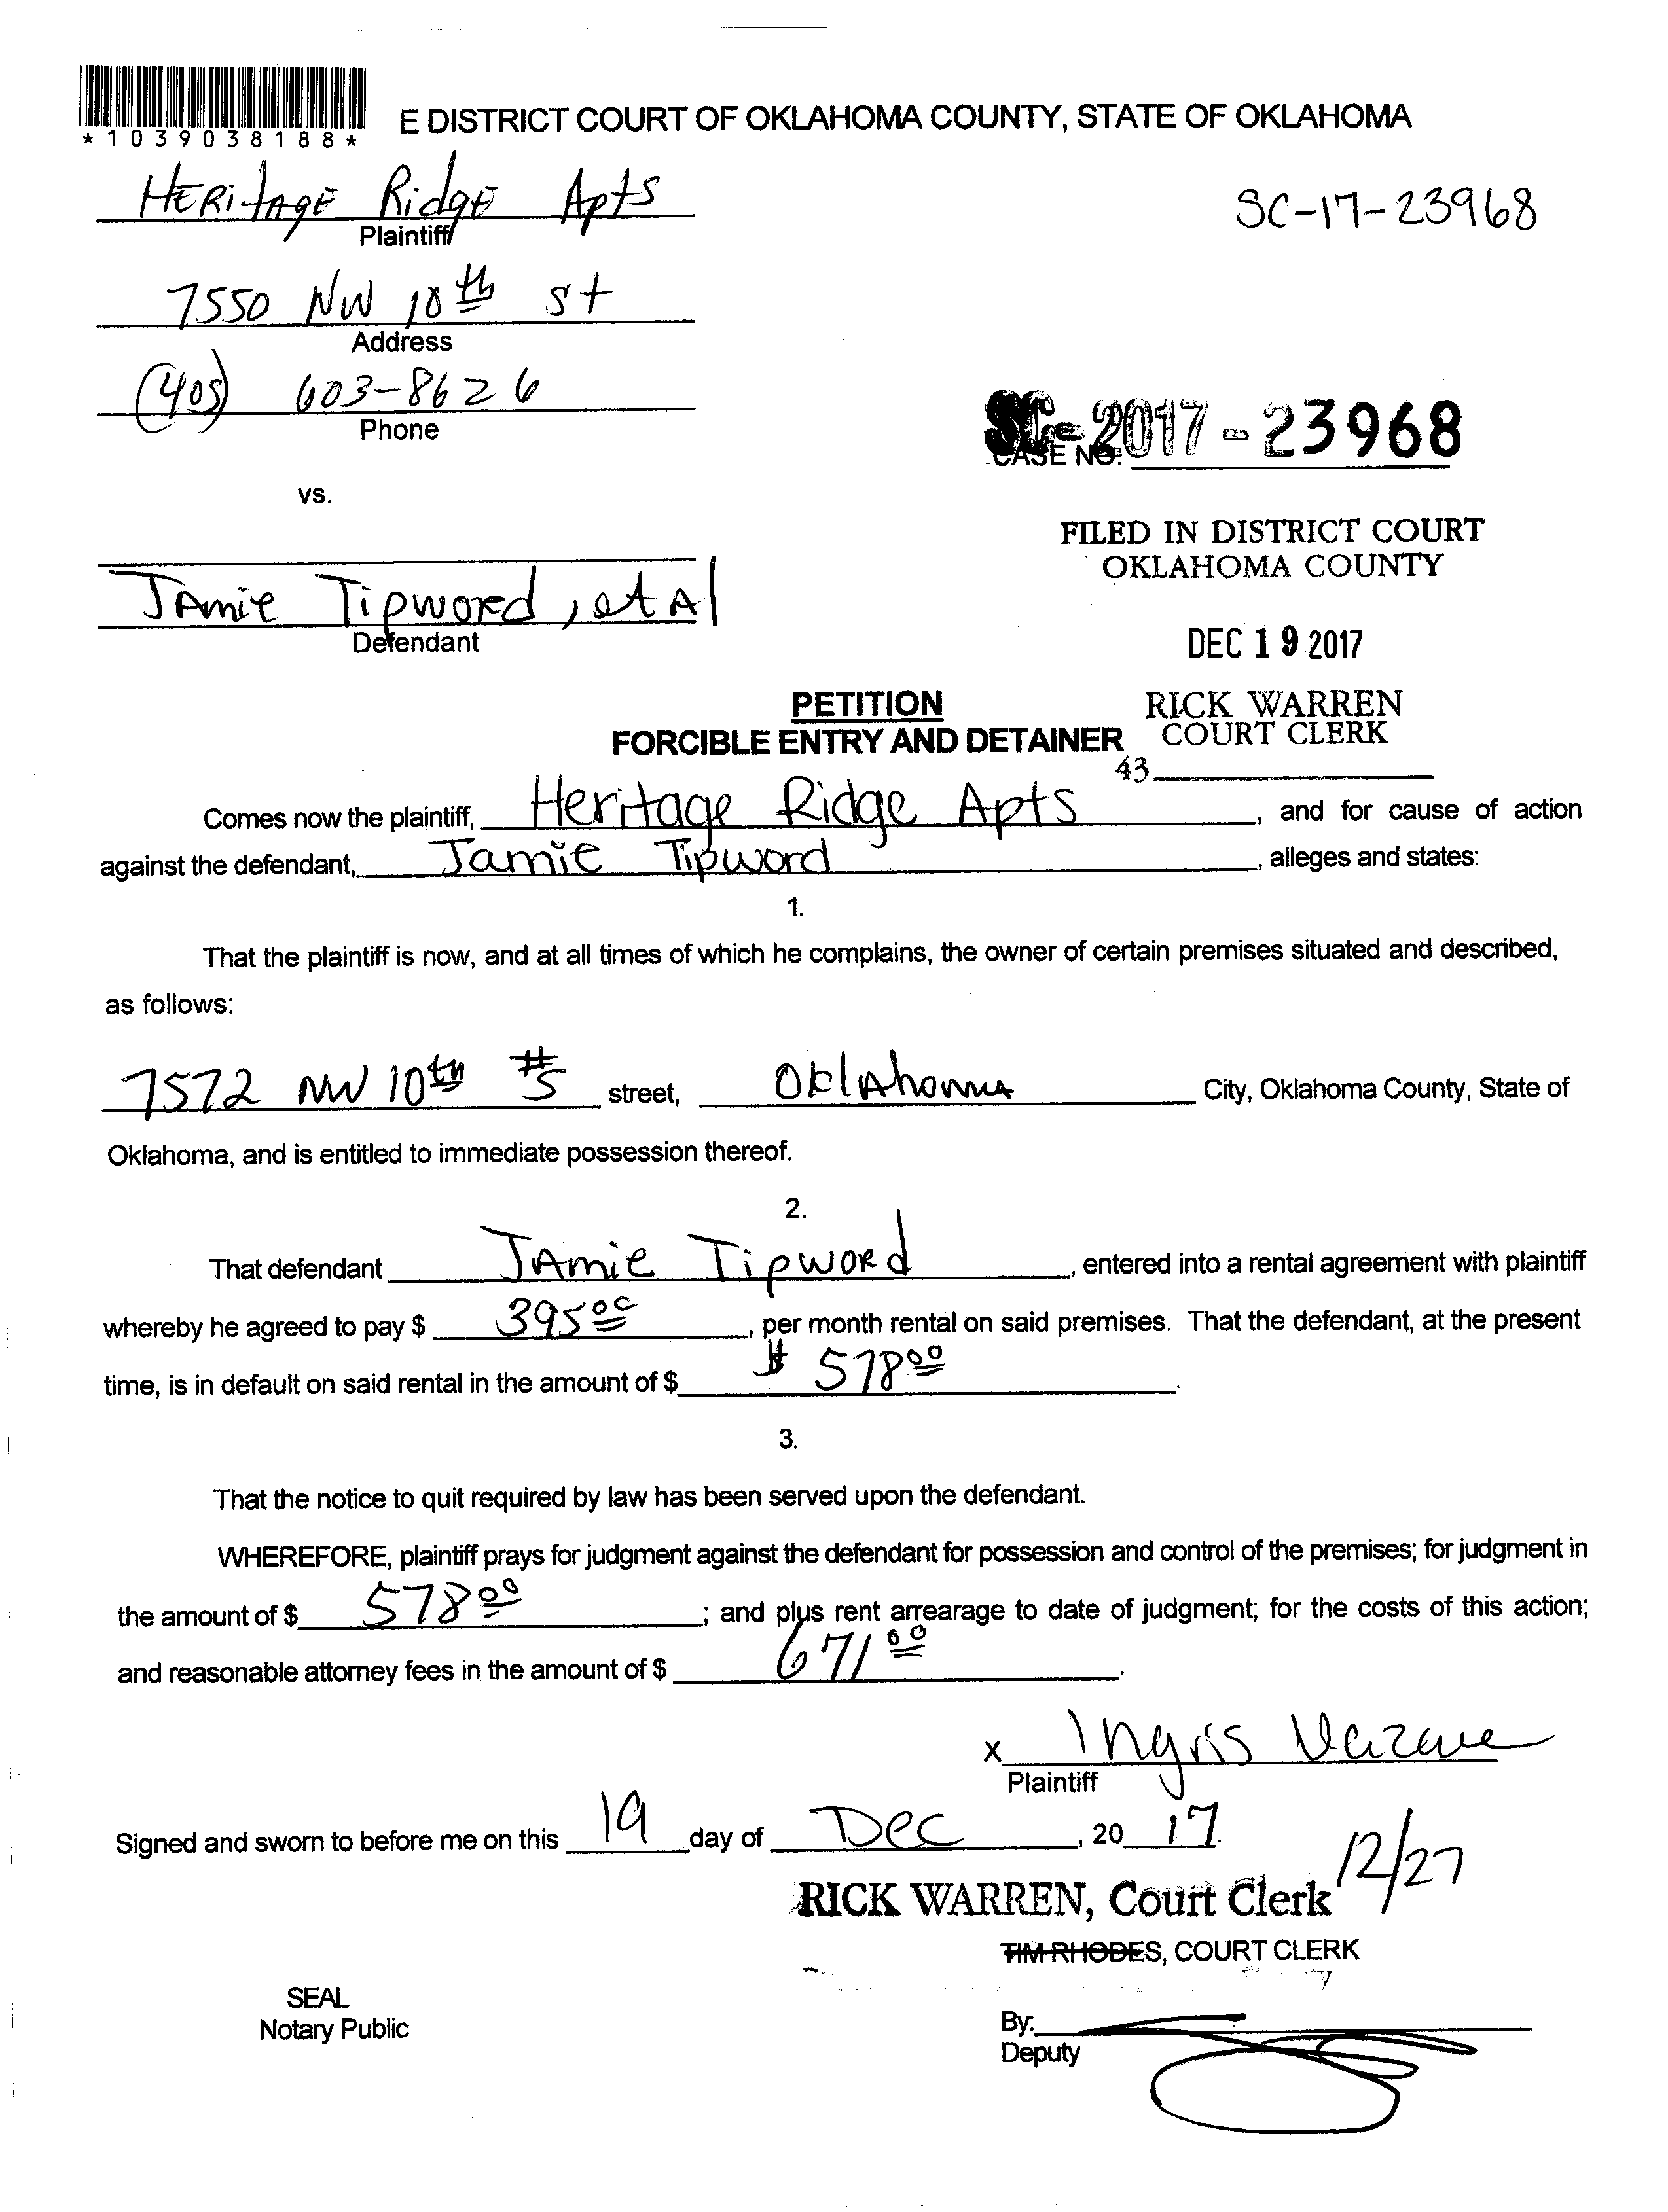 *1039038188*
E DISTRICT COURT OF OKLAHOMA COUNTY, STATE OF OKLAHOMA
HERitAgE Ridge Apts
Plaintiff
SC-17-23968
7550 NW 10th St
Address
(405) 603-8626
Phone
SC-2017-23968
CASE NO.
vs.
FILED IN DISTRICT COURT
OKLAHOMA COUNTY
JAmie TipwoRd, et Al
Defendant
DEC 19 2017
PETITION
RICK WARREN
FORCIBLE ENTRY AND DETAINER
COURT CLERK
43
Comes now the plaintiff, Heritage Ridge Apts, and for cause of action
against the defendant, Jamie Tipword, alleges and states:
1.
That the plaintiff is now, and at all times of which he complains, the owner of certain premises situated and described,
as follows:
7572 NW 10th #5 street, OklAhoma City, Oklahoma County, State of
Oklahoma, and is entitled to immediate possession thereof.
2.
That defendant JAmie TipwoRd, entered into a rental agreement with plaintiff
whereby he agreed to pay $ 395 00, per month rental on said premises. That the defendant, at the present
time, is in default on said rental in the amount of $ $ 578 00.
3.
That the notice to quit required by law has been served upon the defendant.
WHEREFORE, plaintiff prays for judgment against the defendant for possession and control of the premises; for judgment in
the amount of $ 578 00; and plus rent arrearage to date of judgment; for the costs of this action;
and reasonable attorney fees in the amount of $ 671 00.
x Ingris
Plaintiff
Signed and sworn to before me on this 19 day of Dec, 20 17.
12/27
RICK WARREN, Court Clerk
TIM RHODES, COURT CLERK
SEAL
Notary Public
By:
Deputy